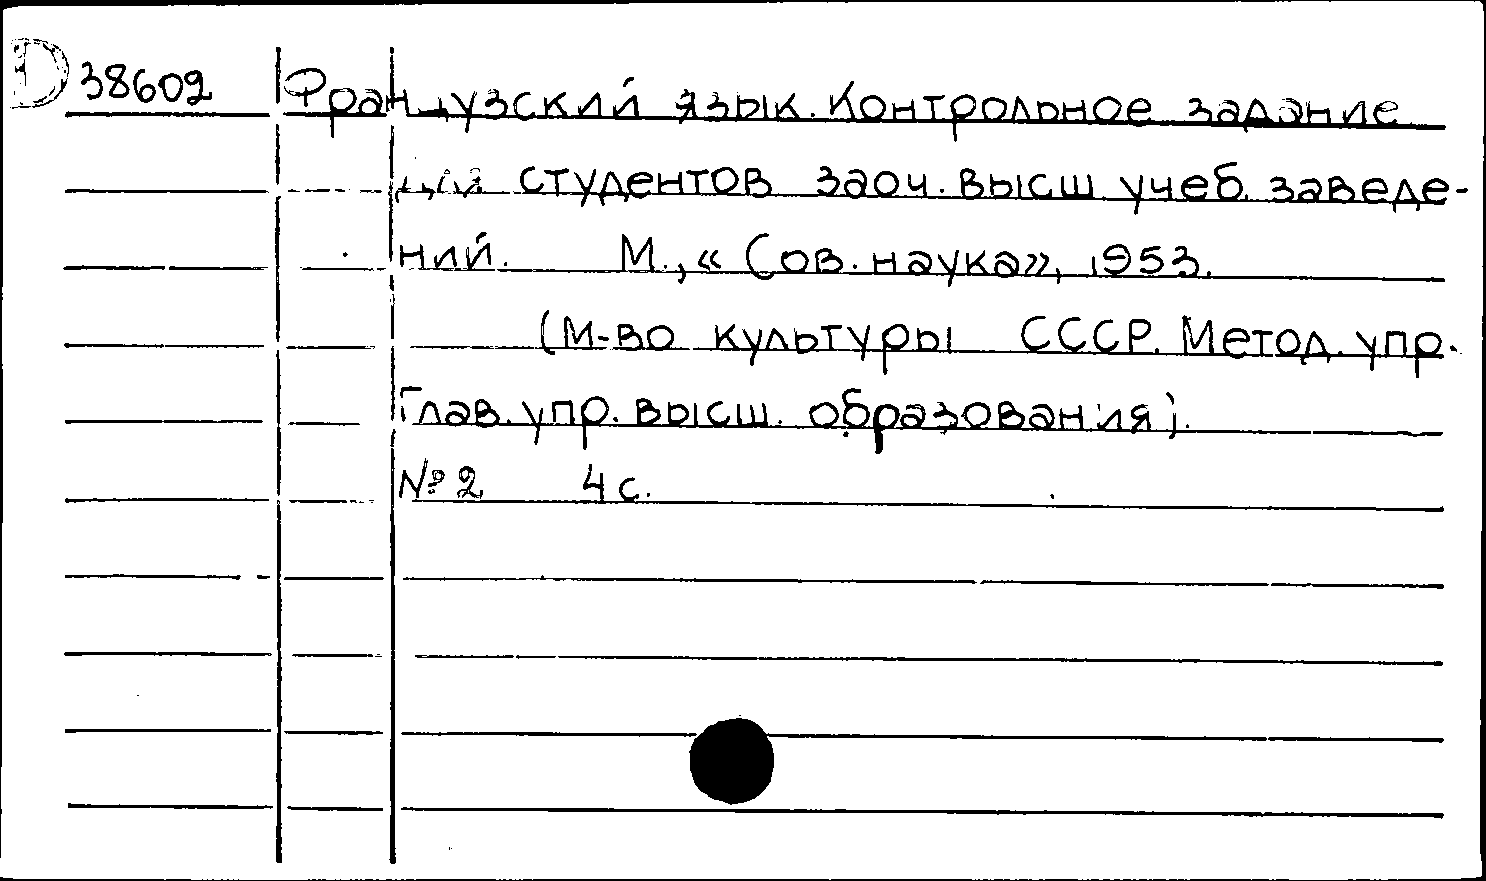 D 38602 Французский язык. Контрольное задание
для студентов заоч. высш. учеб. заведе-
ний. М., «Сов. наука», 1953.
(М-во культуры СССР. Метод. упр.
Глав. упр. высш. образования).
№ 2 4 с.